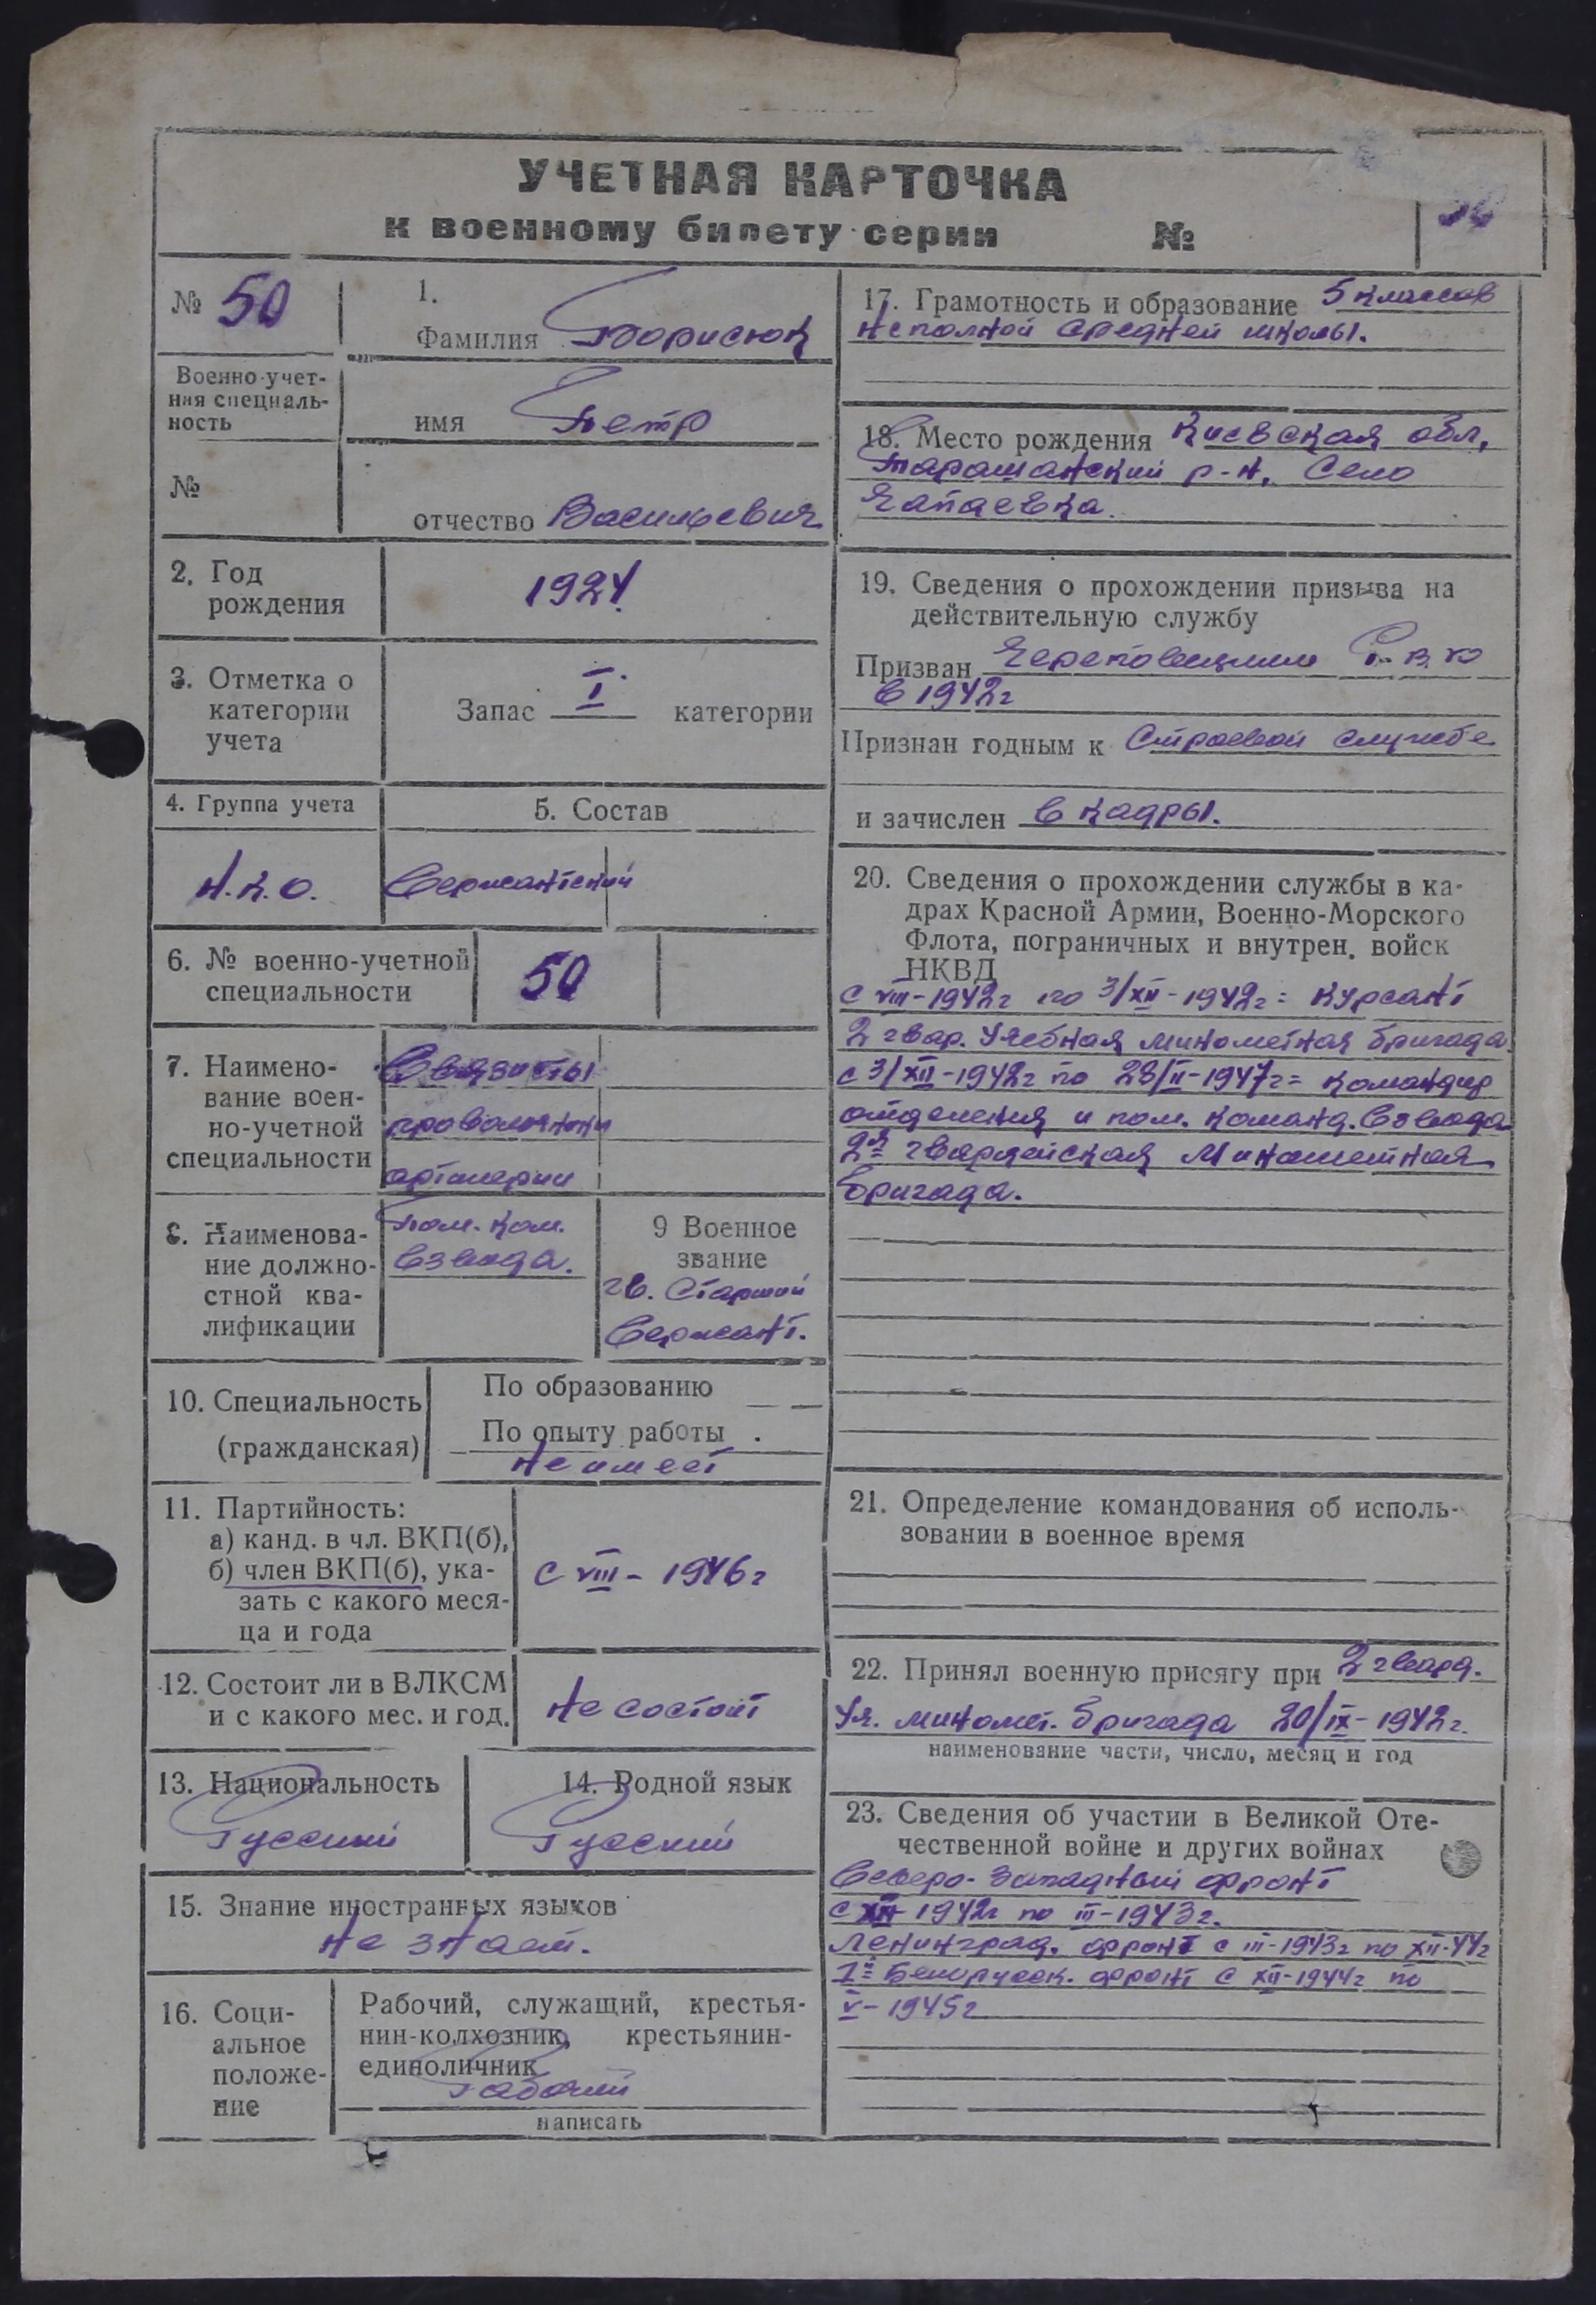 УЧЕТНАЯ КАРТОЧКА
к военному билету серии №
№ 50
1.
Фамилия Борисюк
Военно-учет-
ная специаль-
ность
имя Петр
№
отчество Васильевич
2. Год
рождения
1924
3. Отметка о
категории
учета
Запас I категории
4. Группа учета
5. Состав
Н.К.О.
Сержантский
6. № военно-учетной
специальности
50
7. Наимено-
вание воен-
но-учетной
специальности
Связисты
проволочники
артилерии
8. Наименова-
ние должно-
стной ква-
лификации
Пом. ком.
взвода.
9 Военное
звание
гв. Старший
Сержант.
10. Специальность
(гражданская)
По образованию
По опыту работы
Не имеет
11. Партийность:
а) канд. в чл. ВКП(б),
б) член ВКП(б), ука-
зать с какого меся-
ца и года
с VIII – 1946г
12. Состоит ли в ВЛКСМ
и с какого мес. и год.
Не состоит
13. Национальность
Русский
14. Родной язык
Русский
15. Знание иностранных языков
Не знает.
16. Соци-
альное
положе-
ние
Рабочий, служащий, крестья-
нин-колхозник, крестьянин-
единоличник
Рабочий
написать
17. Грамотность и образование 5 классов
неполной средней школы.
18. Место рождения Киевская обл,
Таращанский р-н, Село
Чапаевка.
19. Сведения о прохождении призыва на
действительную службу
Призван Череповецким Р.В.К
в 1942г
Признан годным к Строевой службе
и зачислен в кадры.
20. Сведения о прохождении службы в ка-
драх Красной Армии, Военно-Морского
Флота, пограничных и внутрен. войск
НКВД
с VIII-1942г по 3/XII-1942г = курсант
2 гвар. Учебная минометная бригада.
с 3/XII-1942г по 28/II-1947г = командир
отделения и пом. команд. взвода
2я гвардейская Минометная
бригада.
21. Определение командования об исполь-
зовании в военное время
22. Принял военную присягу при 2 гвард.
Уч. миномет. бригада 20/IX-1942г.
наименование части, число, месяц и год
23. Сведения об участии в Великой Оте-
чественной войне и других войнах
Северо-Западный фронт
с XII 1942г по III-1943г.
Ленинград. фронт с III-1943г по XII-44г
1й Белорусск. фронт с XII-1944г по
V-1945г